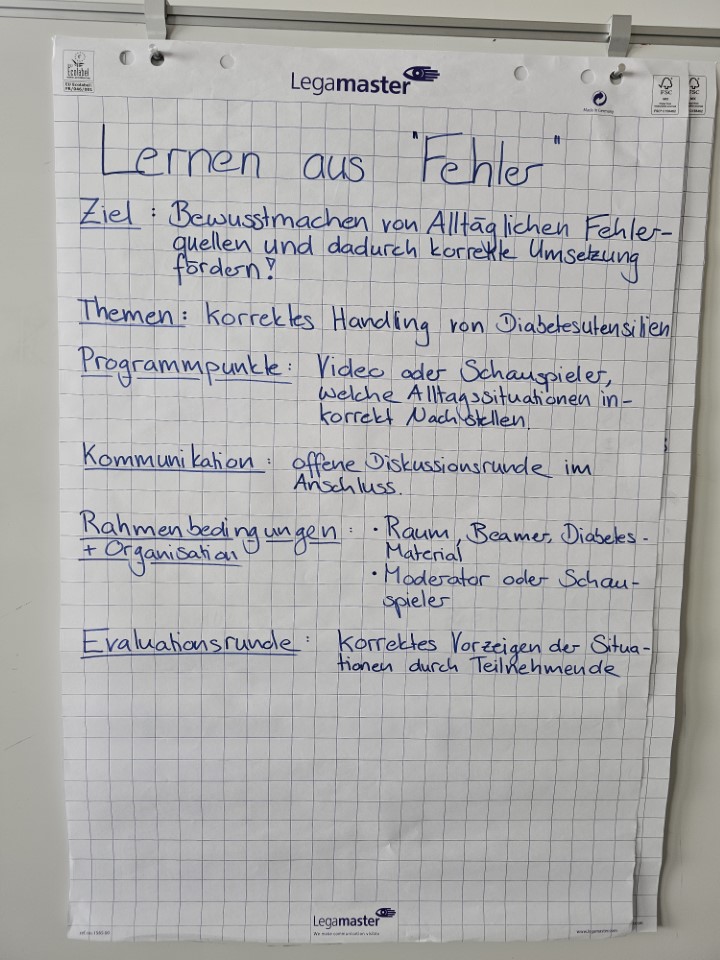 Ecolabel
Legamaster
FSC
FSC
Lernen aus "Fehler"
Ziel : Bewusstmachen von Alltäglichen Fehler-
quellen und dadurch korrekte Umsetzung
fördern!
Themen : korrektes Handling von Diabetesutensilien
Programmpunkte : Video oder Schauspieler,
welche Alltagssituationen in-
korrekt Nachstellen.
Kommunikation : offene Diskussionsrunde im
Anschluss.
Rahmenbedingungen : • Raum, Beamer, Diabetes-
+ Organisation Material
• Moderator oder Schau-
spieler
Evaluationsrunde : korrektes Vorzeigen der Situa-
tionen durch Teilnehmende
Legamaster
www.legamaster.com